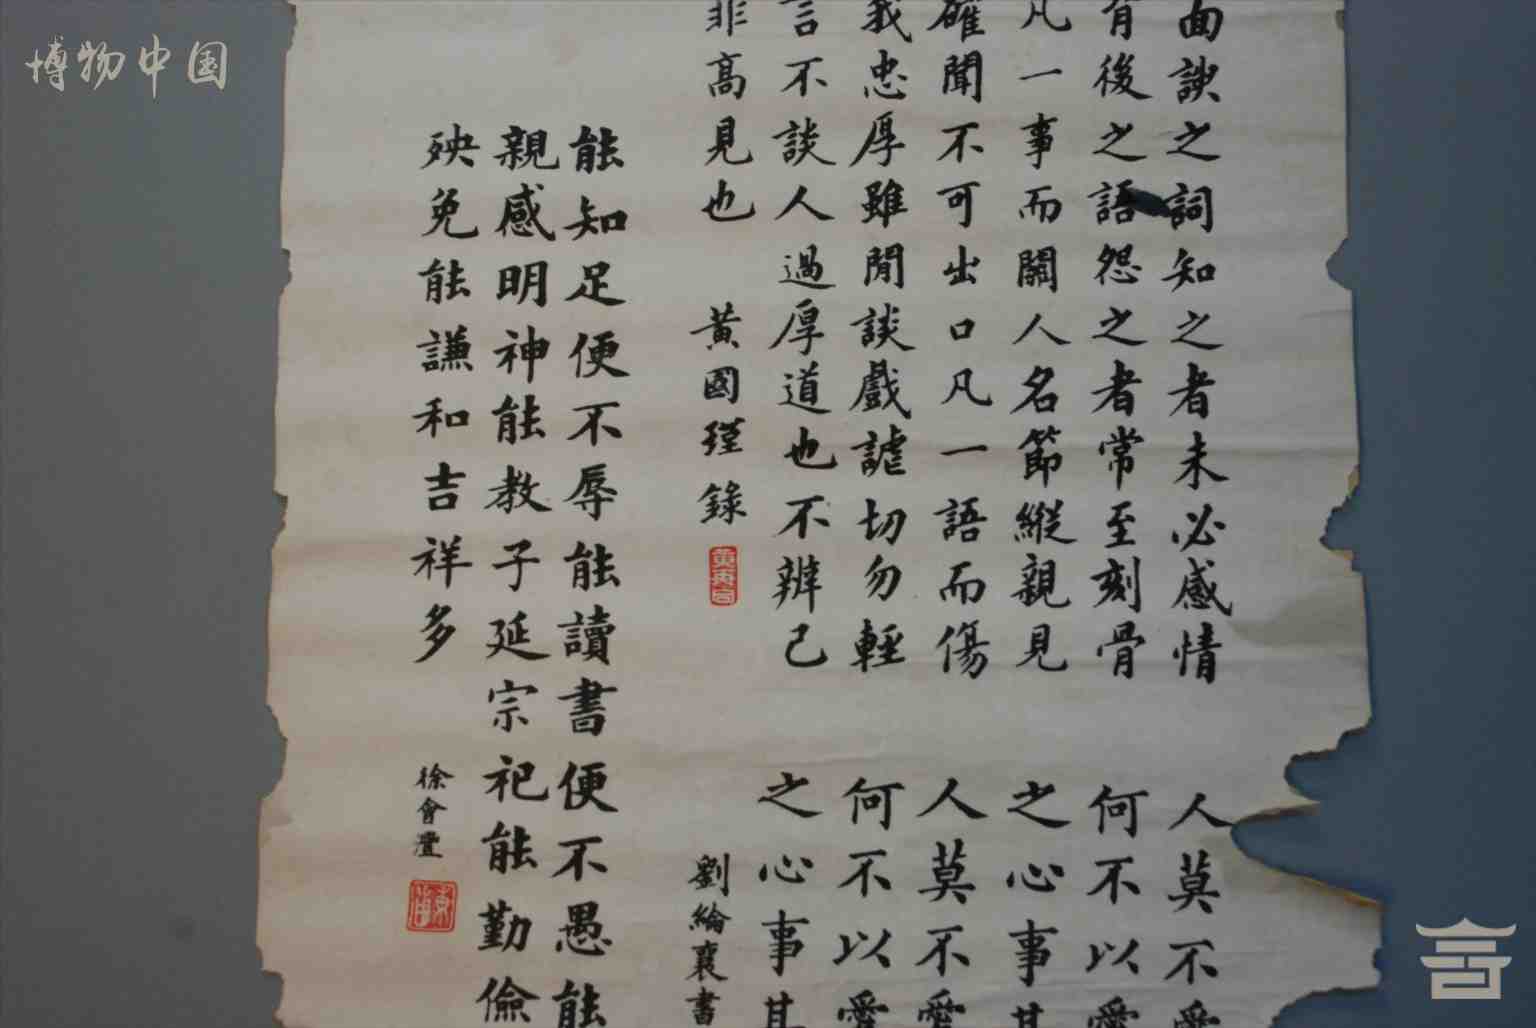 博物中国
面諛之詞知之者未必感情
背後之語怨之者常至刻骨
凡一事而關人名節縱親見
確聞不可出口凡一語而傷
我忠厚雖閒談戲謔切勿輕
言不談人過厚道也不辨己
非高見也
黃國瑾錄
人莫不愛
何不以愛
之心事其
人莫不愛
何不以愛
之心事其
劉綸襄書
能知足便不辱能讀書便不愚能
親感明神能教子延宗祀能勤儉
殃免能謙和吉祥多
徐會灃